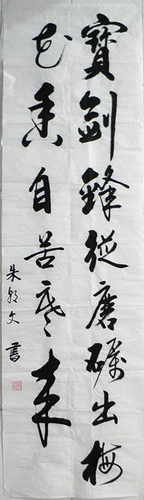 寶劍鋒從磨礪出梅
花香自苦寒來
朱朝文書